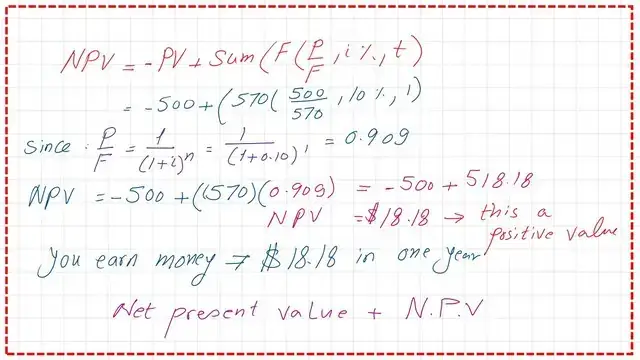 NPV = -PV + Sum (F(P/F, i%, t)
= -500 + (570(500/570, 10%, 1)
Since: P/F = 1/(1+i)^n = 1/(1+0.10)^1 = 0.909
NPV = -500 + ((570)(0.909) = -500 + 518.18
NPV = $18.18 → this a
positive value
You earn money → $18.18 in one year
Net present value + N.P.V